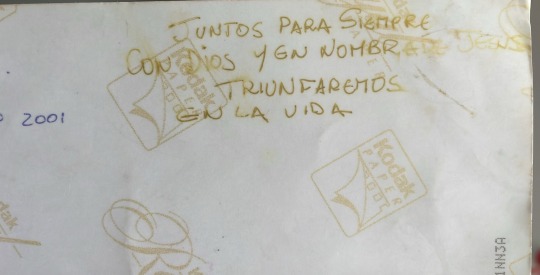 JUNTOS PARA SIEMPRE
CON DIOS Y EN NOMBRE DE JESUS
TRIUNFAREMOS
EN LA VIDA
2001
Kodak
PAPER
Kodak
PAPER
dak